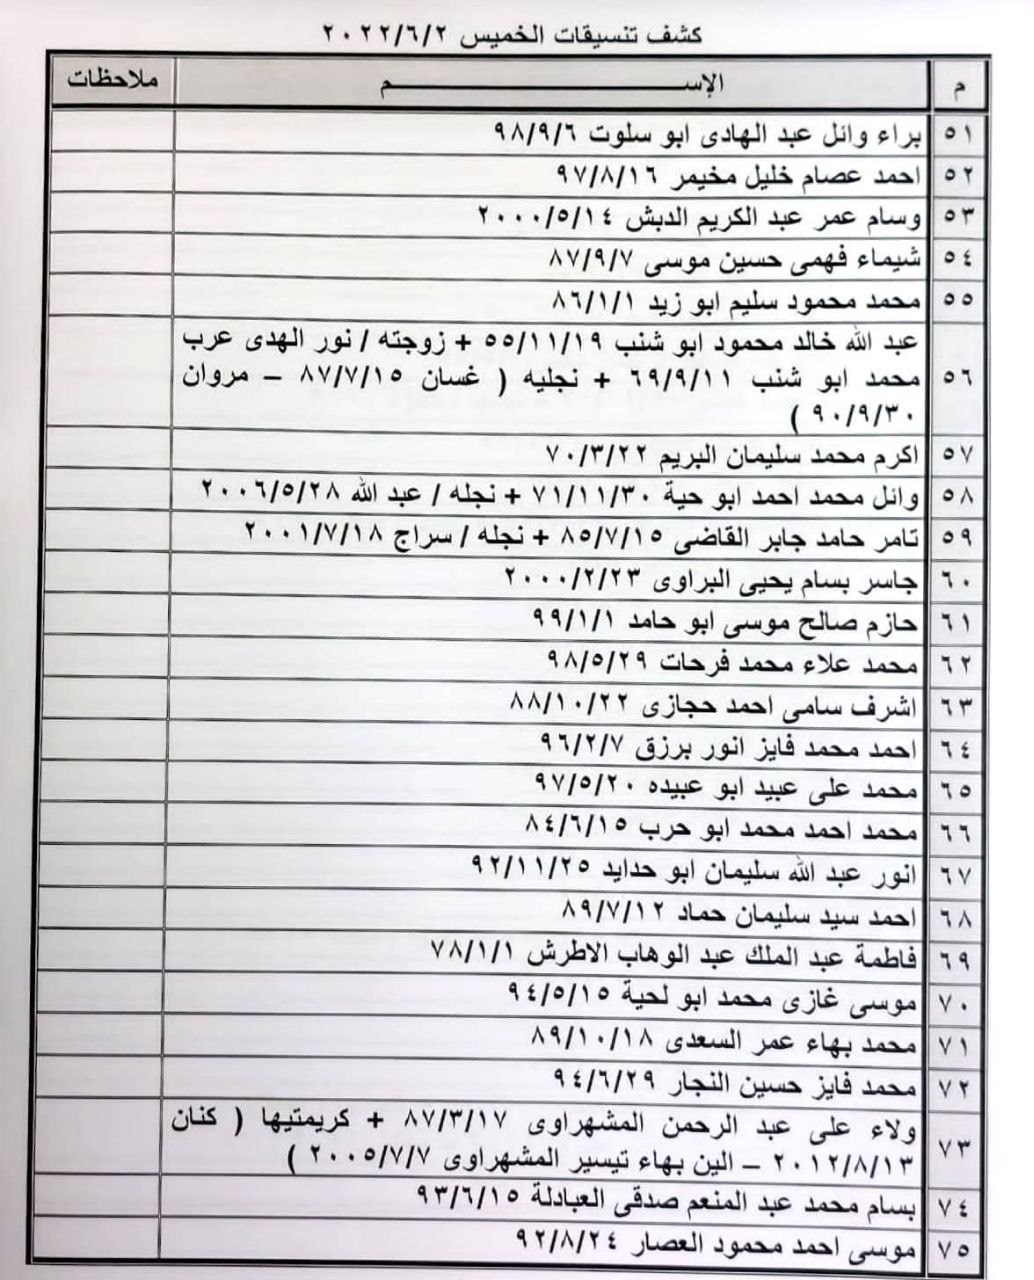 كشف تنسيقات الخميس ٢٠٢٢/٦/٢
م الإســــــــــــم ملاحظات
٥١ براء وائل عبد الهادى ابو سلوت ٩٨/٩/٦
٥٢ احمد عصام خليل مخيمر ٩٧/٨/١٦
٥٣ وسام عمر عبد الكريم الدبش ٢٠٠٠/٥/١٤
٥٤ شيماء فهمى حسين موسى ٨٧/٩/٧
٥٥ محمد محمود سليم ابو زيد ٨٦/١/١
٥٦ عبد الله خالد محمود ابو شنب ٥٥/١١/١٩ + زوجته / نور الهدى عرب
محمد ابو شنب ٦٩/٩/١١ + نجليه ( غسان ٨٧/٧/١٥ – مروان
٩٠/٩/٣٠ )
٥٧ اكرم محمد سليمان البريم ٧٠/٣/٢٢
٥٨ وائل محمد احمد ابو حية ٧١/١١/٣٠ + نجله / عبد الله ٢٠٠٦/٥/٢٨
٥٩ تامر حامد جابر القاضى ٨٥/٧/١٥ + نجله / سراج ٢٠٠١/٧/١٨
٦٠ جاسر بسام يحيى البراوى ٢٠٠٠/٢/٢٣
٦١ حازم صالح موسى ابو حامد ٩٩/١/١
٦٢ محمد علاء محمد فرحات ٩٨/٥/٢٩
٦٣ اشرف سامى احمد حجازى ٨٨/١٠/٢٢
٦٤ احمد محمد فايز انور برزق ٩٦/٢/٧
٦٥ محمد على عبيد ابو عبيده ٩٧/٥/٢٠
٦٦ محمد احمد محمد ابو حرب ٨٤/٦/١٥
٦٧ انور عبد الله سليمان ابو حدايد ٩٢/١١/٢٥
٦٨ احمد سيد سليمان حماد ٨٩/٧/١٢
٦٩ فاطمة عبد الملك عبد الوهاب الاطرش ٧٨/١/١
٧٠ موسى غازى محمد ابو لحية ٩٤/٥/١٥
٧١ محمد بهاء عمر السعدى ٨٩/١٠/١٨
٧٢ محمد فايز حسين النجار ٩٤/٦/٢٩
٧٣ ولاء على عبد الرحمن المشهراوى ٨٧/٣/١٧ + كريمتيها ( كنان
٢٠١٢/٨/١٣ – الين بهاء تيسير المشهراوى ٢٠٠٥/٧/٧ )
٧٤ بسام محمد عبد المنعم صدقى العبادلة ٩٣/٦/١٥
٧٥ موسى احمد محمود العصار ٩٢/٨/٢٤